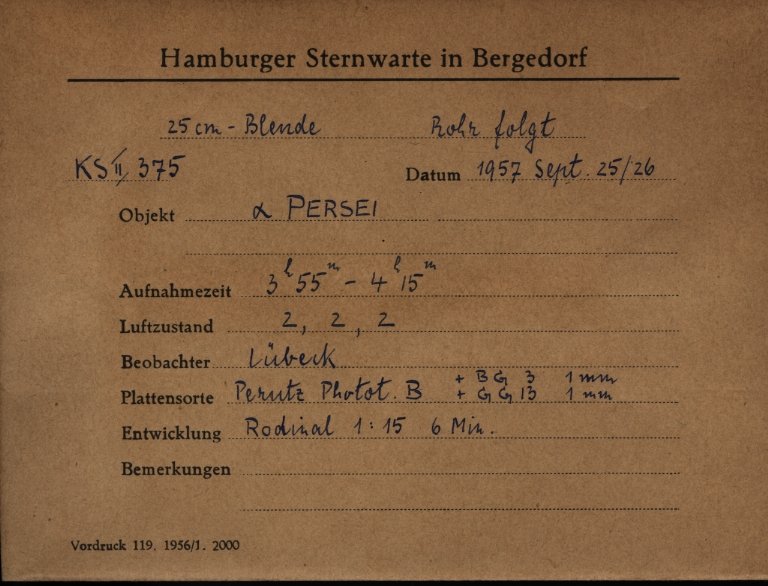 Hamburger Sternwarte in Bergedorf
25 cm - Blende Rohr folgt
KS II, 375 Datum 1957 Sept. 25/26
Objekt α PERSEI
Aufnahmezeit 3h 55m - 4h 15m
Luftzustand 2, 2, 2
Beobachter Lübeck
Plattensorte Perutz Photot. B + BG 3 1 mm
+ GG 13 1 mm
Entwicklung Rodinal 1:15 6 Min.
Bemerkungen
Vordruck 119. 1956/1. 2000